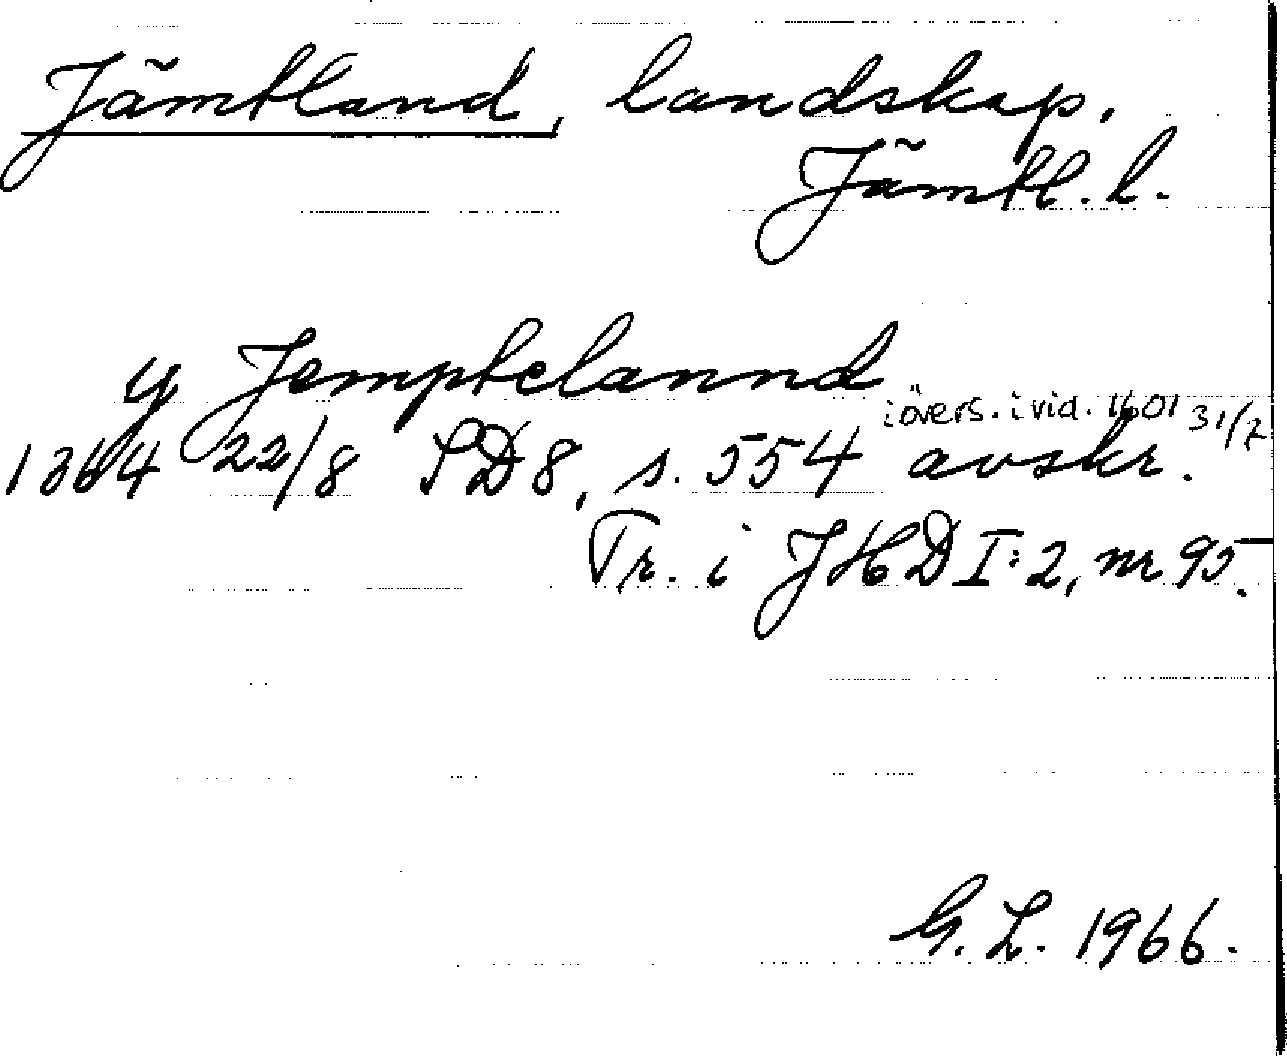 Jämtland, landskap.
Jämtl. l.
y Jemptelannd
i övers. i vid. 1601 31/7
1364 22/8 SD8, s. 554 avskr.
Tr. i JHD I:2, nr 95.
G. L. 1966.